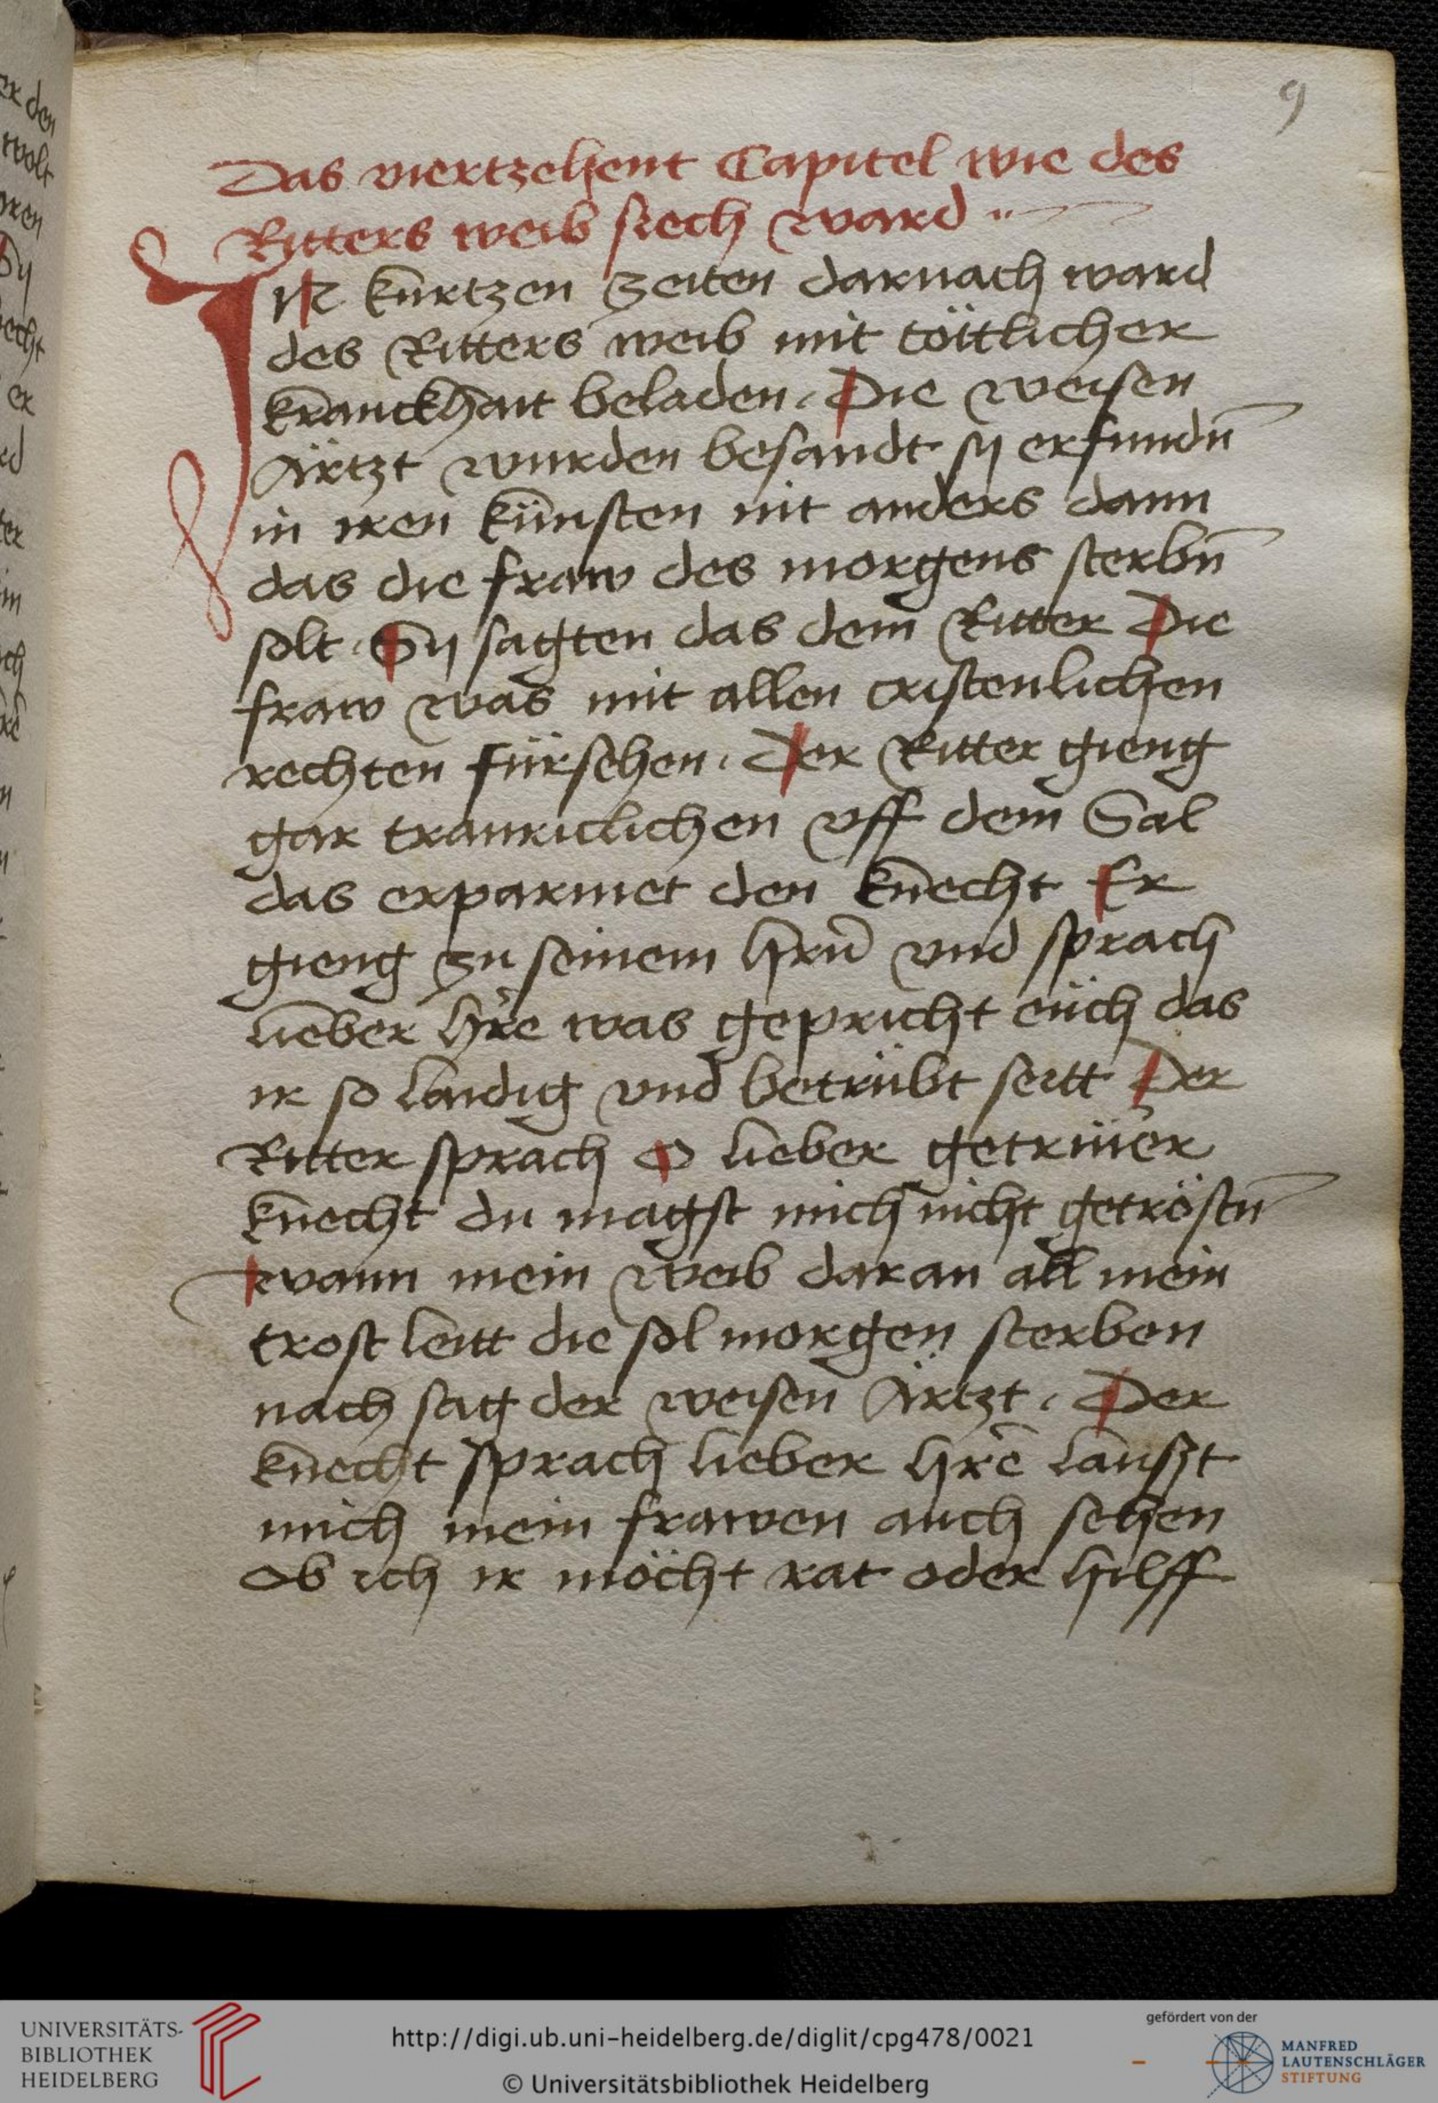 9
Das viertzehent Capitel wie des
Ritters weib siech ward
IN kurtzen zeiten darnach ward
des Ritters weib mit töttlicher
kranckhait beladen. Die weisen
Ärtzt wurden besandt sy erfundn̄
in iren künsten nit anders dann
das die fraw des morgens sterbn̄
solt. Sy sagten das dem Ritter Die
fraw was mit allen cristenlichen
rechten fürsehen. Der Ritter gieng
gar trauriclichen vff dem Sal
das erparmet den knecht Er
gieng zu seinem hrn̄ vnd sprach
lieber hr̄e was gepricht eüch das
ir so laidig vnd betrübt seitt Der
Ritter sprach O lieber getrüer
knecht du magst mich nicht getröstn̄
wann mein weib daran all mein
trost leitt die sol morgen sterben
nach sag der weisen Ärtzt. Der
knecht sprach lieber hr̄e laußt
mich mein frawen auch sehen
ob ich ir möcht rat oder hilff
UNIVERSITÄTS-
BIBLIOTHEK
HEIDELBERG
http://digi.ub.uni-heidelberg.de/diglit/cpg478/0021
© Universitätsbibliothek Heidelberg
gefördert von der
MANFRED
LAUTENSCHLÄGER
STIFTUNG